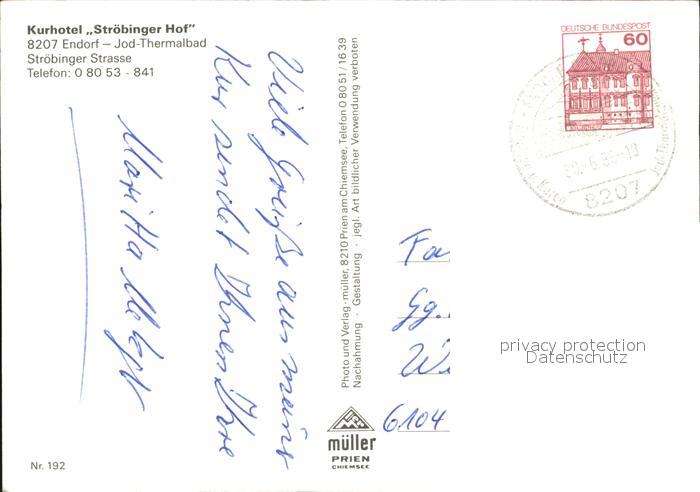 Kurhotel „Ströbinger Hof“
8207 Endorf – Jod-Thermalbad
Ströbinger Strasse
Telefon: 0 80 53 - 841
Viele Grüße aus meiner
Kur sendet Ihnen Ihre
Maritta
Photo und Verlag · müller, 8210 Prien am Chiemsee, Telefon 0 80 51 / 16 39
Nachahmung · Gestaltung · jegl. Art bildlicher Verwendung verboten
DEUTSCHE BUNDESPOST
60
8207
Fa
Gg.
Wi
6104
privacy protection
Datenschutz
müller
PRIEN
CHIEMSEE
Nr. 192